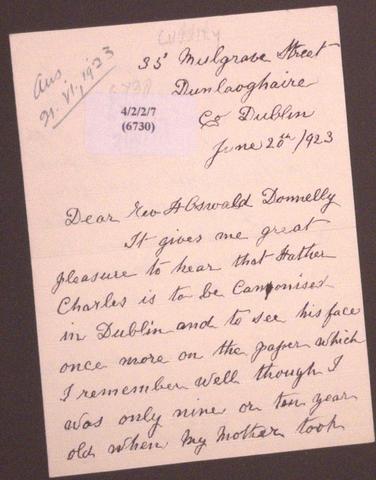 Ans.
21. VI. 1923
35 Mulgrave Street
Dunlaoghaire
Co Dublin
June 20th/1923
4/2/2/7
(6730)
Dear Rev H Oswald Donnelly
It gives me great
pleasure to hear that Father
Charles is to be Canonised
in Dublin and to see his face
once more on the paper which
I remember well though I
was only nine or ten year
old when my Mother took